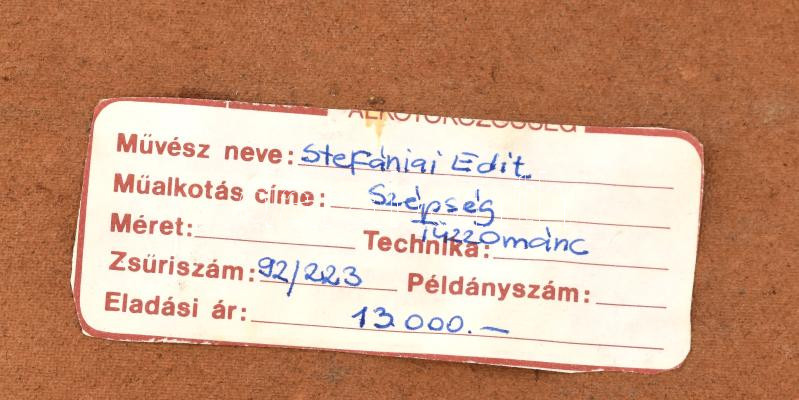 ALKOTÓKÖZÖSSÉG
Művész neve: Stefániai Edit
Műalkotás címe: Szépség
Méret: Technika: Tűzzománc
Zsűriszám: 92/223 Példányszám:
Eladási ár: 13.000.—